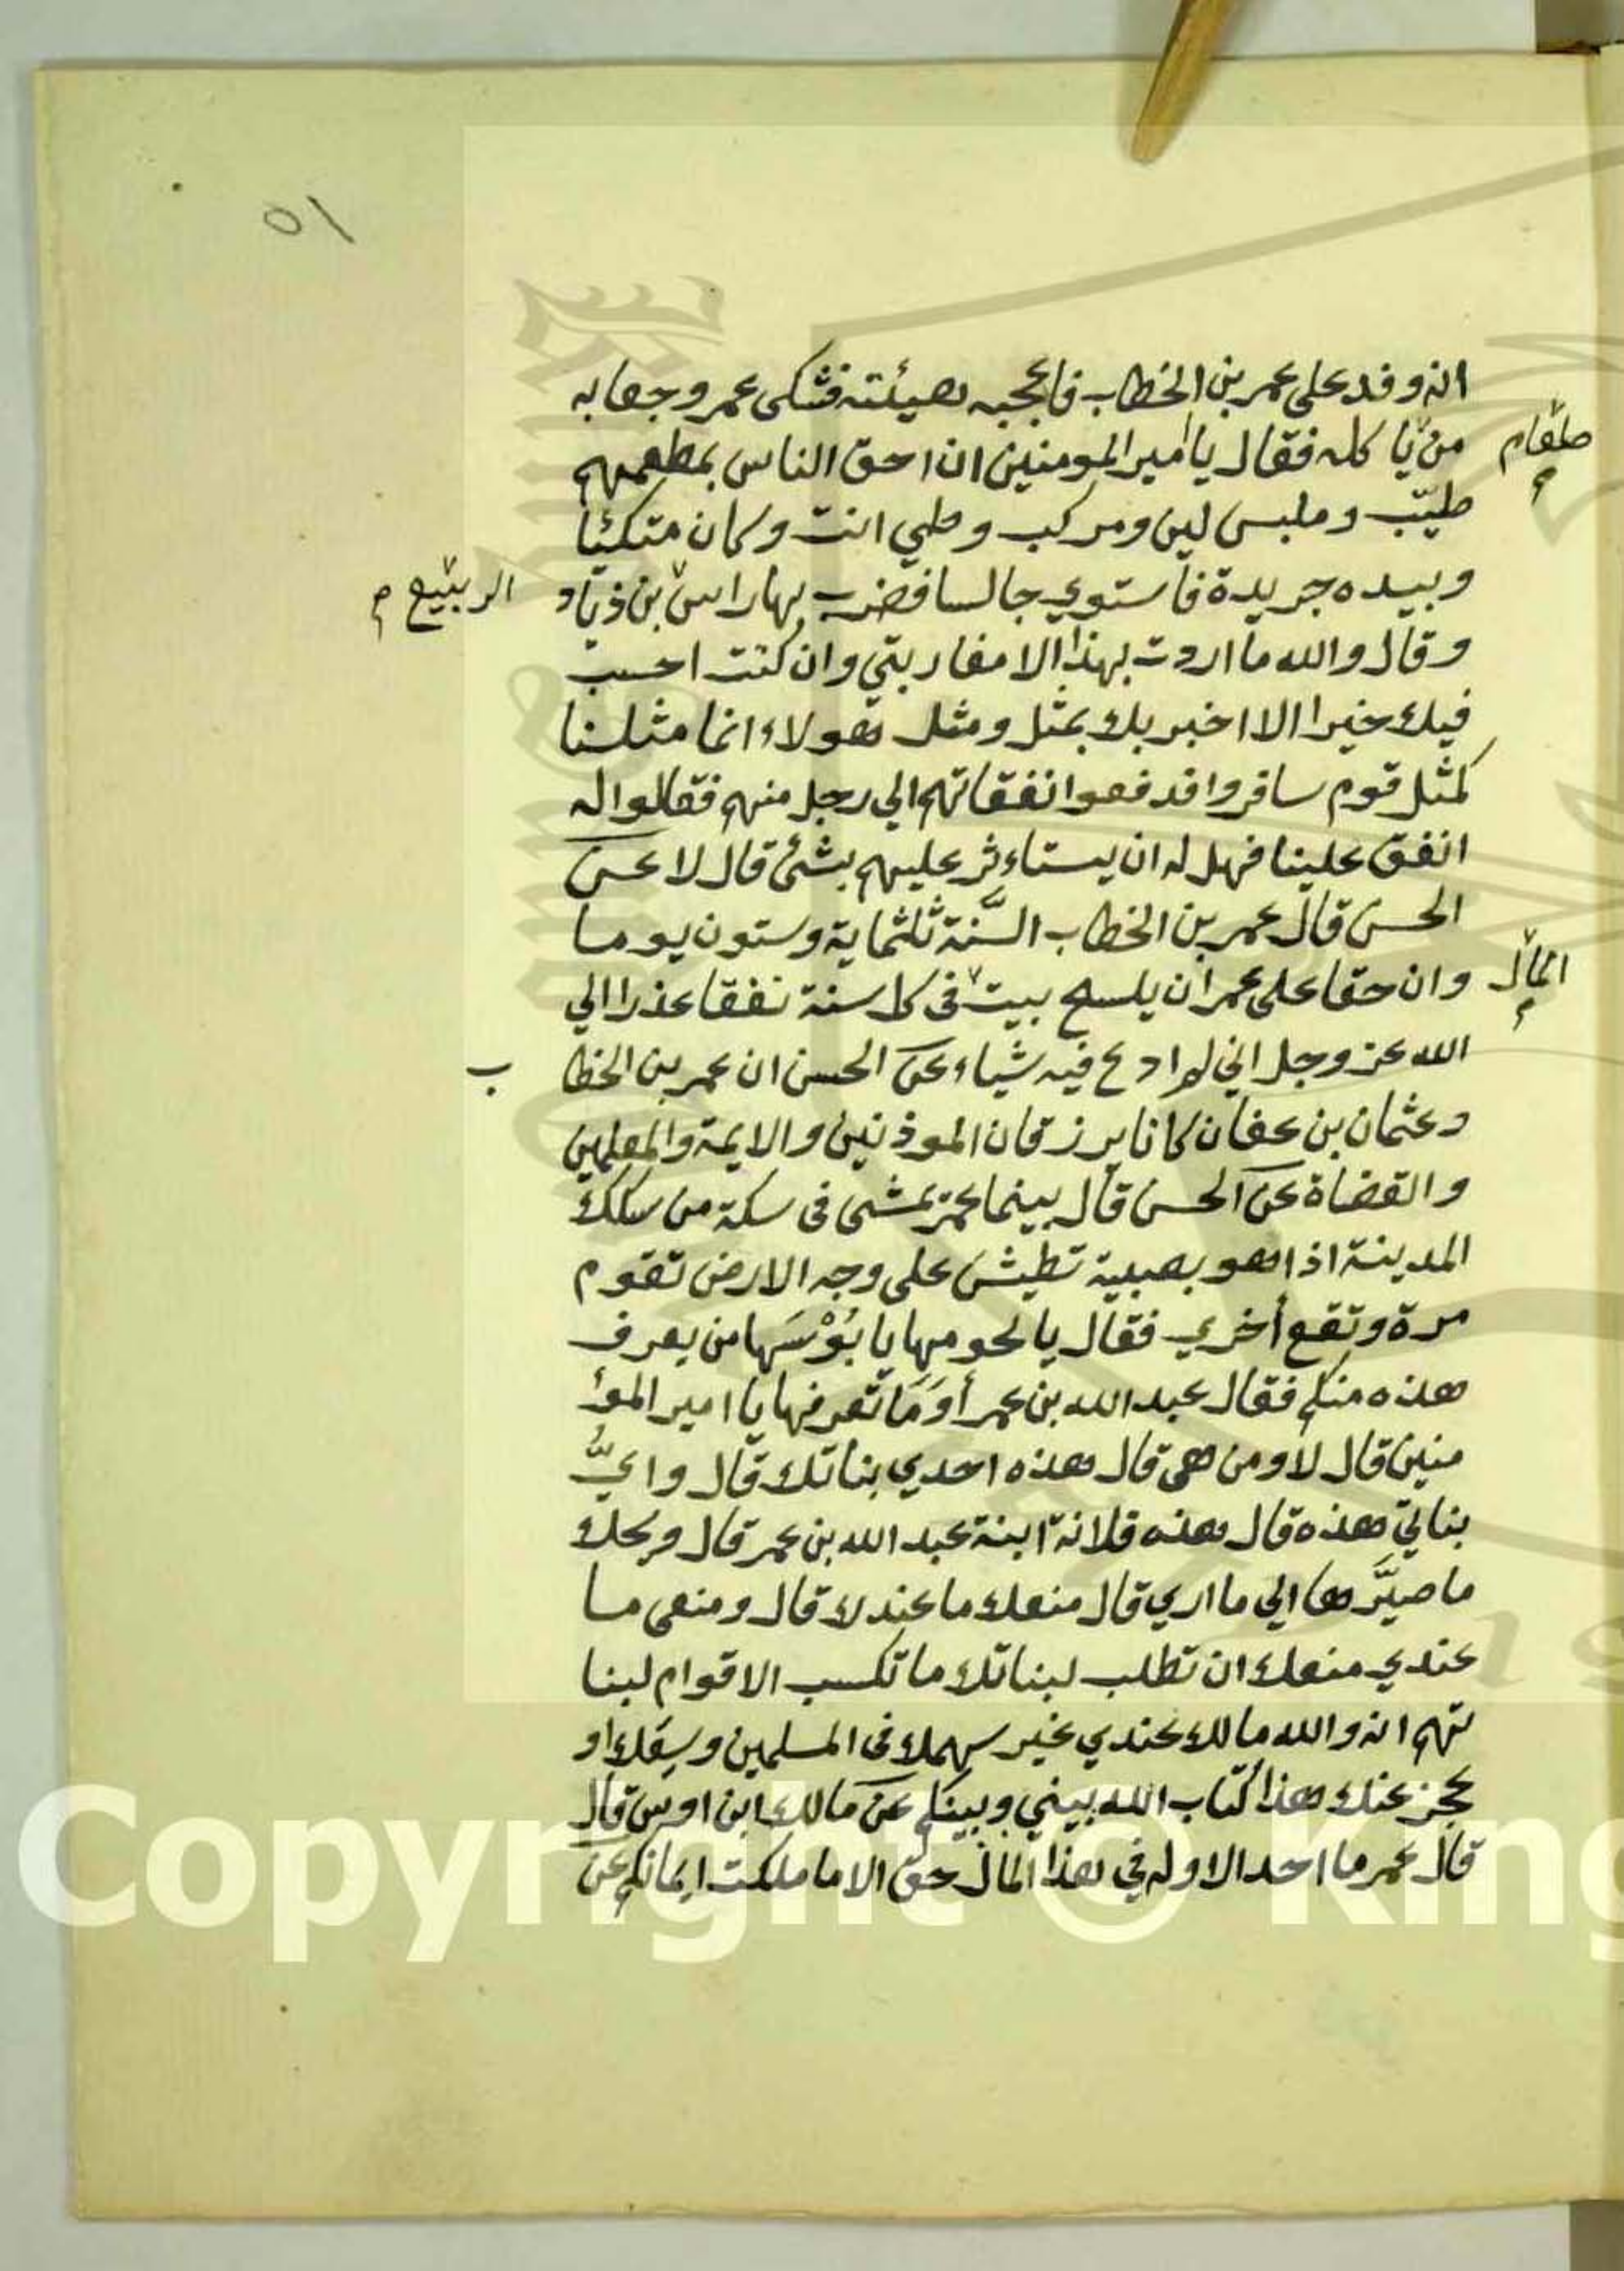 ٥١
انه وفد على عمر بن الخطاب فاعجبه هيئته فشكى عمر وجعا به
من يا كله فقال يا امير المومنين ان احق الناس بمطعمهم
طعام م
طيّب وملبس لين ومركب وطي انت وكان متكئا
وبيده جريدة فاستوي جالسا فضرب بها راس بن زياد
الربيع م
وقال والله ما اردت بهذا الا مقاربتي وان كنت احسب
فيك خيرا الا اخبر بك بمثل ومثل هولاء انما مثلنا
كمثل قوم سافروا فدفعوا نفقاتهم الي رجل منهم فقالوا له
انفق علينا فهل له ان يستاءثر عليهم بشئ قال لا عن
الحسن قال عمر بن الخطاب السَّنة ثلثماية وستون يوما
وان حقا على عمر ان يلسح بيت في كل سنة نفقا عذرا الي
المال م
الله عز وجل اني لم ادع فيه شياء عن الحسن ان عمر بن الخطا ب
وعثمان بن عفان كانا يرزقان الموذنين والايمة والمعلمين
والقضاة عن الحسن قال بينما عمر يمشى فى سكة من سكك
المدينة اذا هو بصبية تطيش على وجه الارض تقوم
مرة وتقع أخري فقال يا لحومها يا بُوْسَها من يعرف
هذه منكم فقال عبد الله بن عمر أوَمَا تعرفها يا امير المؤ
منين قال لا ومن هى قال هذه احدي بناتك قال وايُّ
بناتي هذه قال هذه فلانة ابنة عبد الله بن عمر قال ويحك
ما صيَّرها الي ما اري قال منعك ما عندك قال ومنعى ما
عندي منعك ان تطلب لبناتك ما تكسب الاقوام لبنا
تهم انه والله مالك عندي غير سهمك فى المسلمين وسعك او
عجز عنك هذا كتاب الله بيني وبينكم عن مالك ابن اوس قال
قال عمر ما احد الا وله في هذا المال حق الا ما ملكت ايمانكم عن
Copyright © King